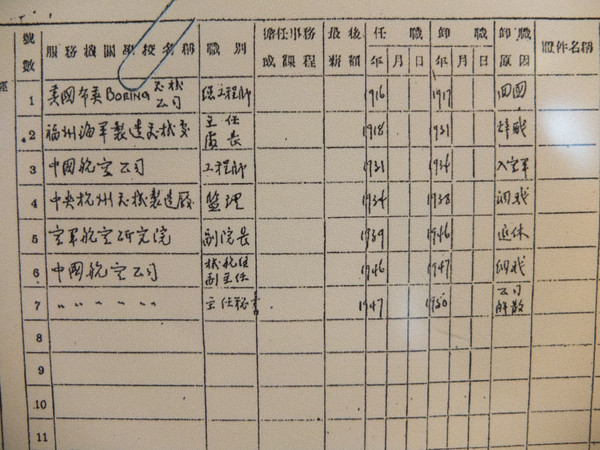 號數 服務機關學校名稱 職別 擔任事務或課程 最後薪額 任職 年 月 日 卸職 年 月 日 卸職原因 證件名稱
1 美國 BORING 飛机公司 總工程師 1916 1917 回國
2 福州海軍製造飛机處 主任 處長 1918 1931 辞職
3 中國航空公司 工程師 1931 1934 入空軍
4 中央杭州飛機製造廠 監理 1934 1938 調職
5 空軍航空研究院 副院長 1939 1946 退休
6 中國航空公司 副主任 1946 1947 調職
7 〃 〃 〃 〃 〃 〃 主任秘書 1947 1950 公司解散
8
9
10
11